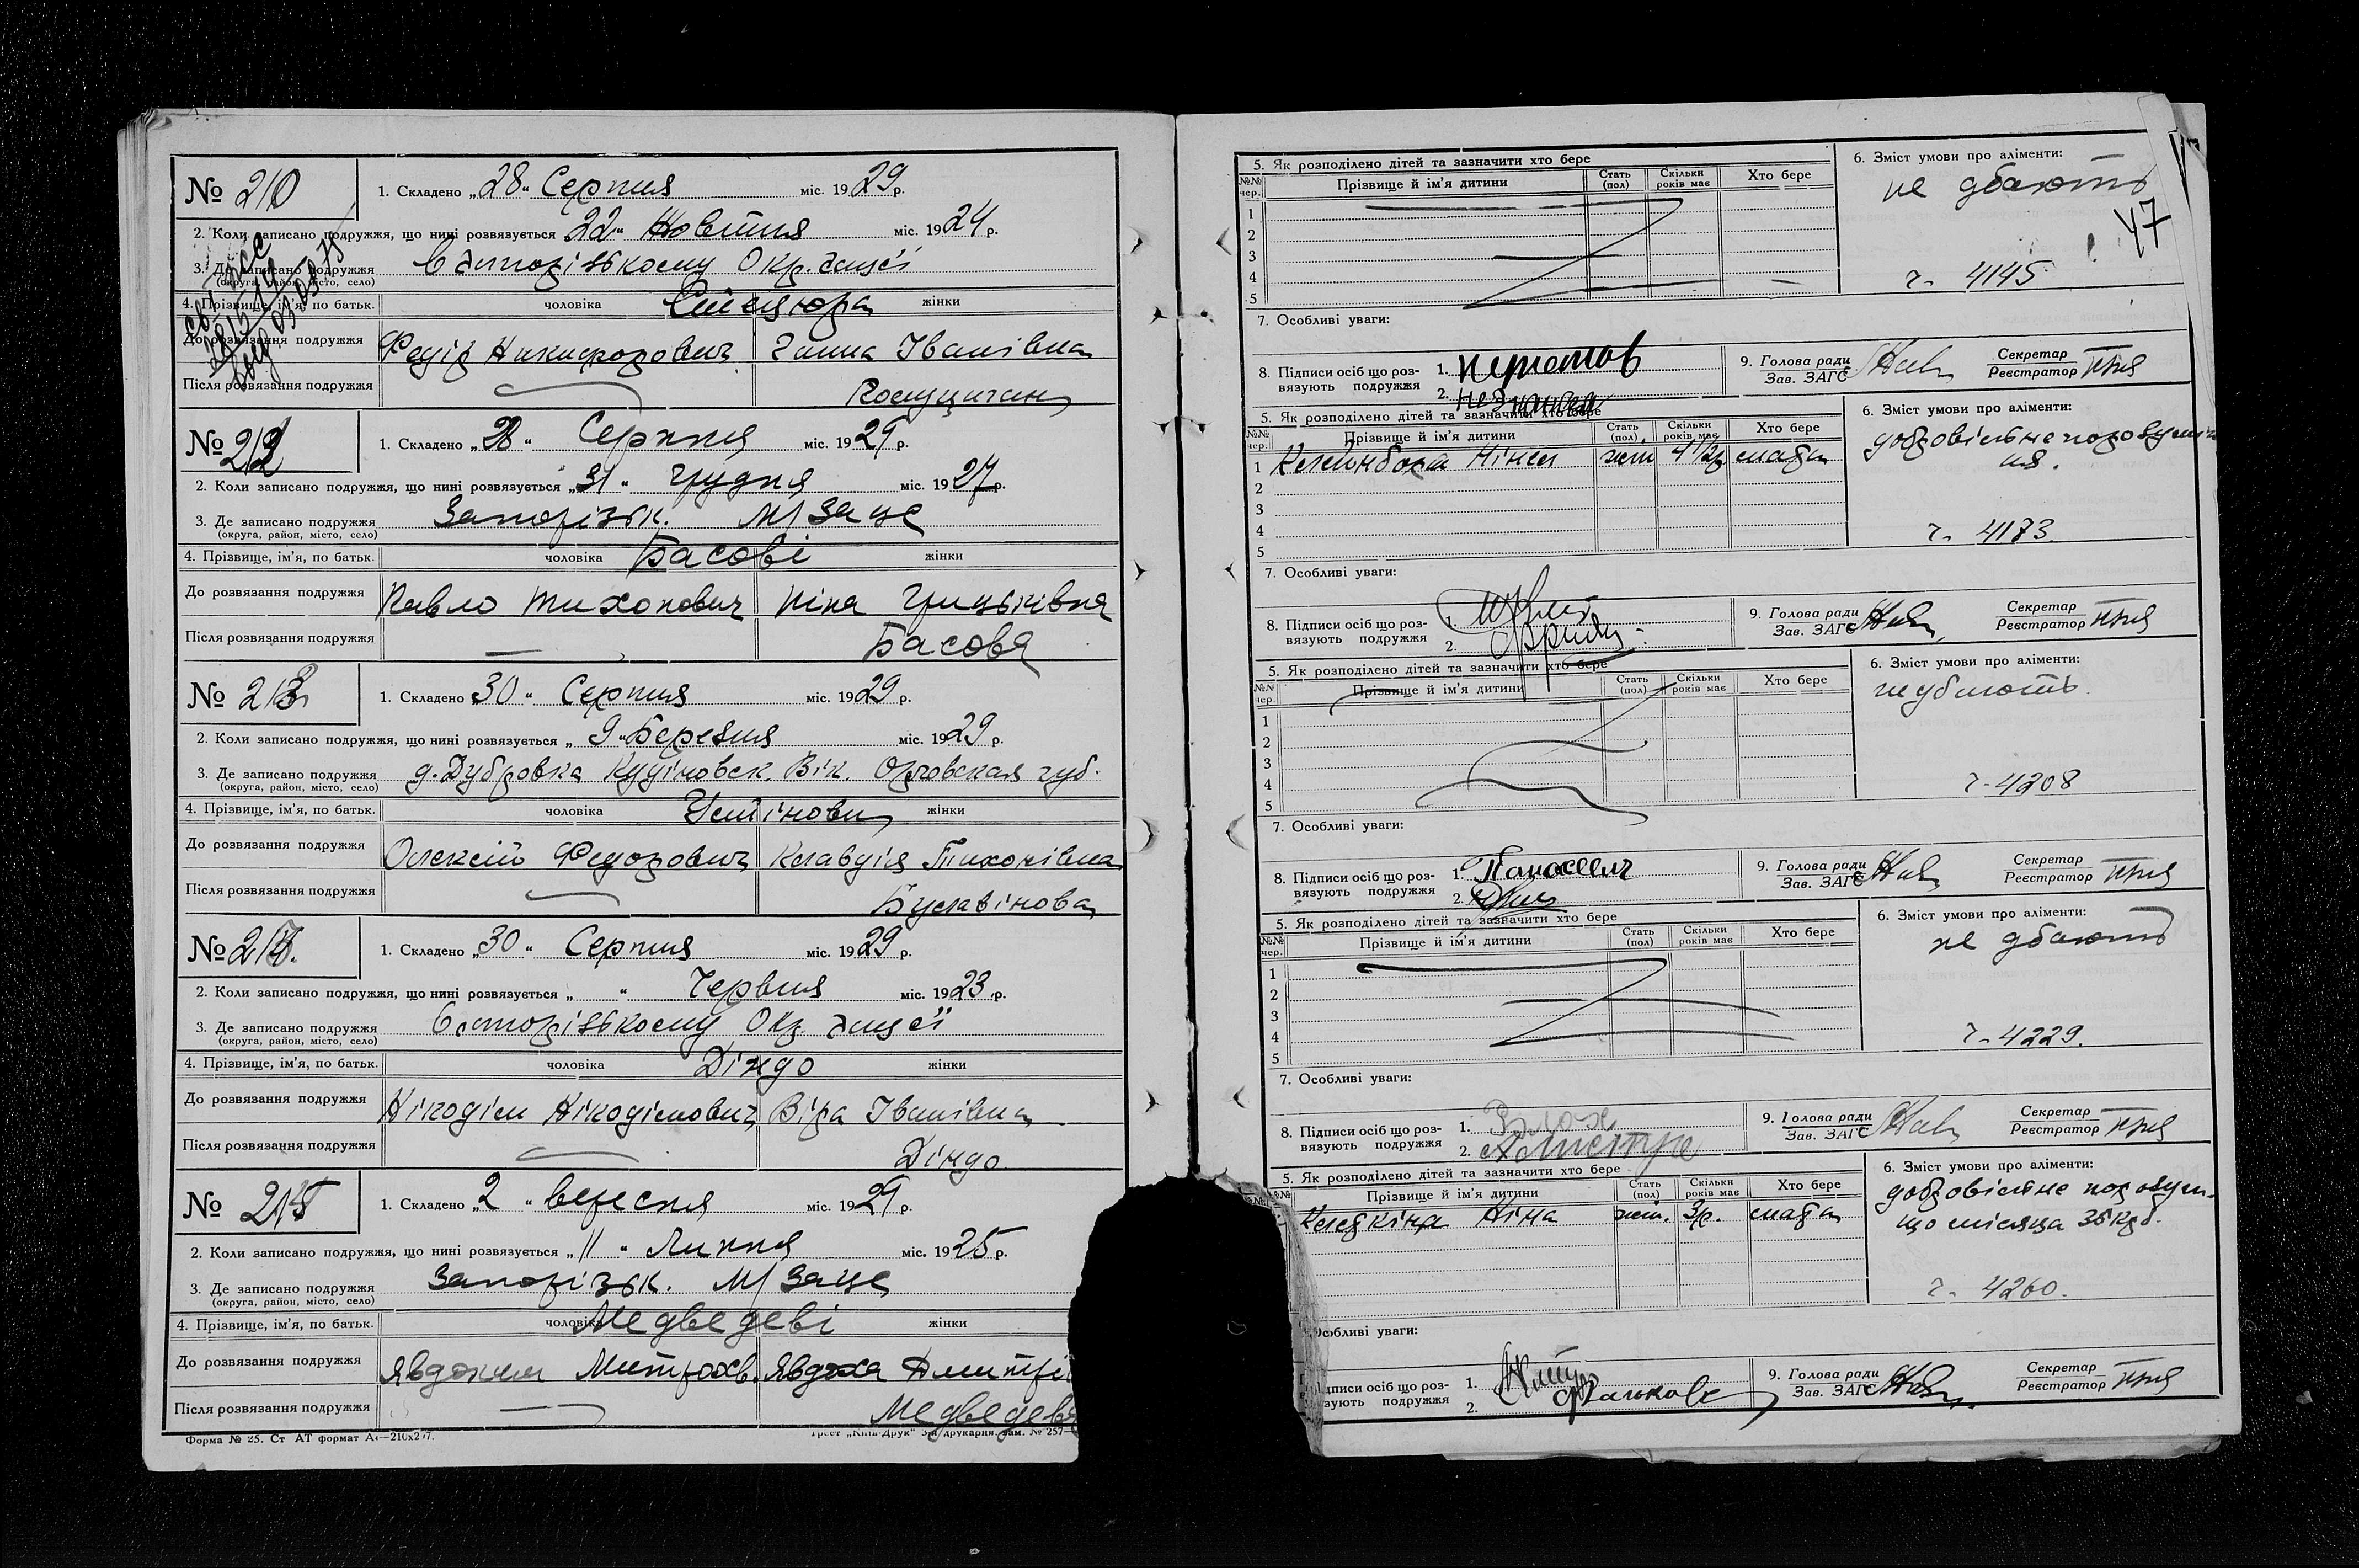 № 210
1. Складено „28“ Серпня міс. 1929 р.
2. Коли записано подружжя, що нині розвязується 22“ Жовтня міс. 1924 р.
3. Де записано подружжя В Запорізькому Окр. Загсі
(округа, район, місто, село)
4. Прізвище, ім'я, по батьк. чоловіка жінки
До розвязання подружжя Федір Никифорович Ганна Іванівна
Після розвязання подружжя
№ 212
1. Складено „28“ Серпня міс. 1929 р.
2. Коли записано подружжя, що нині розвязується „31“ Грудня міс. 1927 р.
3. Де записано подружжя Запорізьк. М/Загс
(округа, район, місто, село)
4. Прізвище, ім'я, по батьк. чоловіка Басові жінки
До розвязання подружжя Павло Тихонович Ніна Грицьківна
Після розвязання подружжя — Басова
№ 213
1. Складено 30“ Серпня міс. 1929 р.
2. Коли записано подружжя, що нині розвязується „9“ Березня міс. 1929 р.
3. Де записано подружжя д. Дубровка Вік. Орловская губ.
(округа, район, місто, село)
4. Прізвище, ім'я, по батьк. чоловіка Устінови жінки
До розвязання подружжя Олексій Федорович Клавдія Тихонівна
Після розвязання подружжя Буславінова
№ 214.
1. Складено „30“ Серпня міс. 1929 р.
2. Коли записано подружжя, що нині розвязується „ “ Червня міс. 1923 р.
3. Де записано подружжя В Запорізькому Окр. Загсі
(округа, район, місто, село)
4. Прізвище, ім'я, по батьк. чоловіка Діндо жінки
До розвязання подружжя Нікодім Нікодімович Віра Іванівна
Після розвязання подружжя Діндо.
№ 215
1. Складено „2“ вересня міс. 1929 р.
2. Коли записано подружжя, що нині розвязується „11“ Липня міс. 1925 р.
3. Де записано подружжя Запорізьк. М/Загс
(округа, район, місто, село)
4. Прізвище, ім'я, по батьк. чоловіка Медведеві жінки
До розвязання подружжя Явдоким Митрохв. Явдоха
Після розвязання подружжя — Медведева
Форма № 25. Ст АТ формат А4—210х297.
Трест „Київ-Друк“ 3-я друкарня. Зам. № 257—
47
5. Як розподілено дітей та зазначити хто бере
№№ чер. Прізвище й ім'я дитини Стать (пол) Скільки років має Хто бере
1
2
3
4
5
6. Зміст умови про аліменти:
не дбають
ч. 4145
7. Особливі уваги:
8. Підписи осіб що розвязують подружжя 1. 2.
9. Голова ради Зав. ЗАГС Секретар Реєстратор
5. Як розподілено дітей та зазначити хто бере
№№ чер. Прізвище й ім'я дитини Стать (пол) Скільки років має Хто бере
1 Ніна жін 4 1/2 р. мати
2
3
4
5
6. Зміст умови про аліменти:
добровільне порозумін-
ня.
ч. 4173
7. Особливі уваги:
8. Підписи осіб що розвязують подружжя 1. 2.
9. Голова ради Зав. ЗАГС Секретар Реєстратор
5. Як розподілено дітей та зазначити хто бере
№№ чер. Прізвище й ім'я дитини Стать (пол) Скільки років має Хто бере
1
2
3
4
5
6. Зміст умови про аліменти:
не дбають.
ч. 4208
7. Особливі уваги:
8. Підписи осіб що розвязують подружжя 1. 2.
9. Голова ради Зав. ЗАГС Секретар Реєстратор
5. Як розподілено дітей та зазначити хто бере
№№ чер. Прізвище й ім'я дитини Стать (пол) Скільки років має Хто бере
1
2
3
4
5
6. Зміст умови про аліменти:
не дбають
ч. 4229.
7. Особливі уваги:
8. Підписи осіб що розвязують подружжя 1. 2.
9. Голова ради Зав. ЗАГС Секретар Реєстратор
5. Як розподілено дітей та зазначити хто бере
Прізвище й ім'я дитини Стать (пол) Скільки років має Хто бере
Ніна жін. 3 р. мати
6. Зміст умови про аліменти:
добровільне порозум.
що місяця 35 крб.
ч. 4260.
Особливі уваги:
дписи осіб що роз-
зують подружжя 1. 2.
9. Голова ради Зав. ЗАГС Секретар Реєстратор